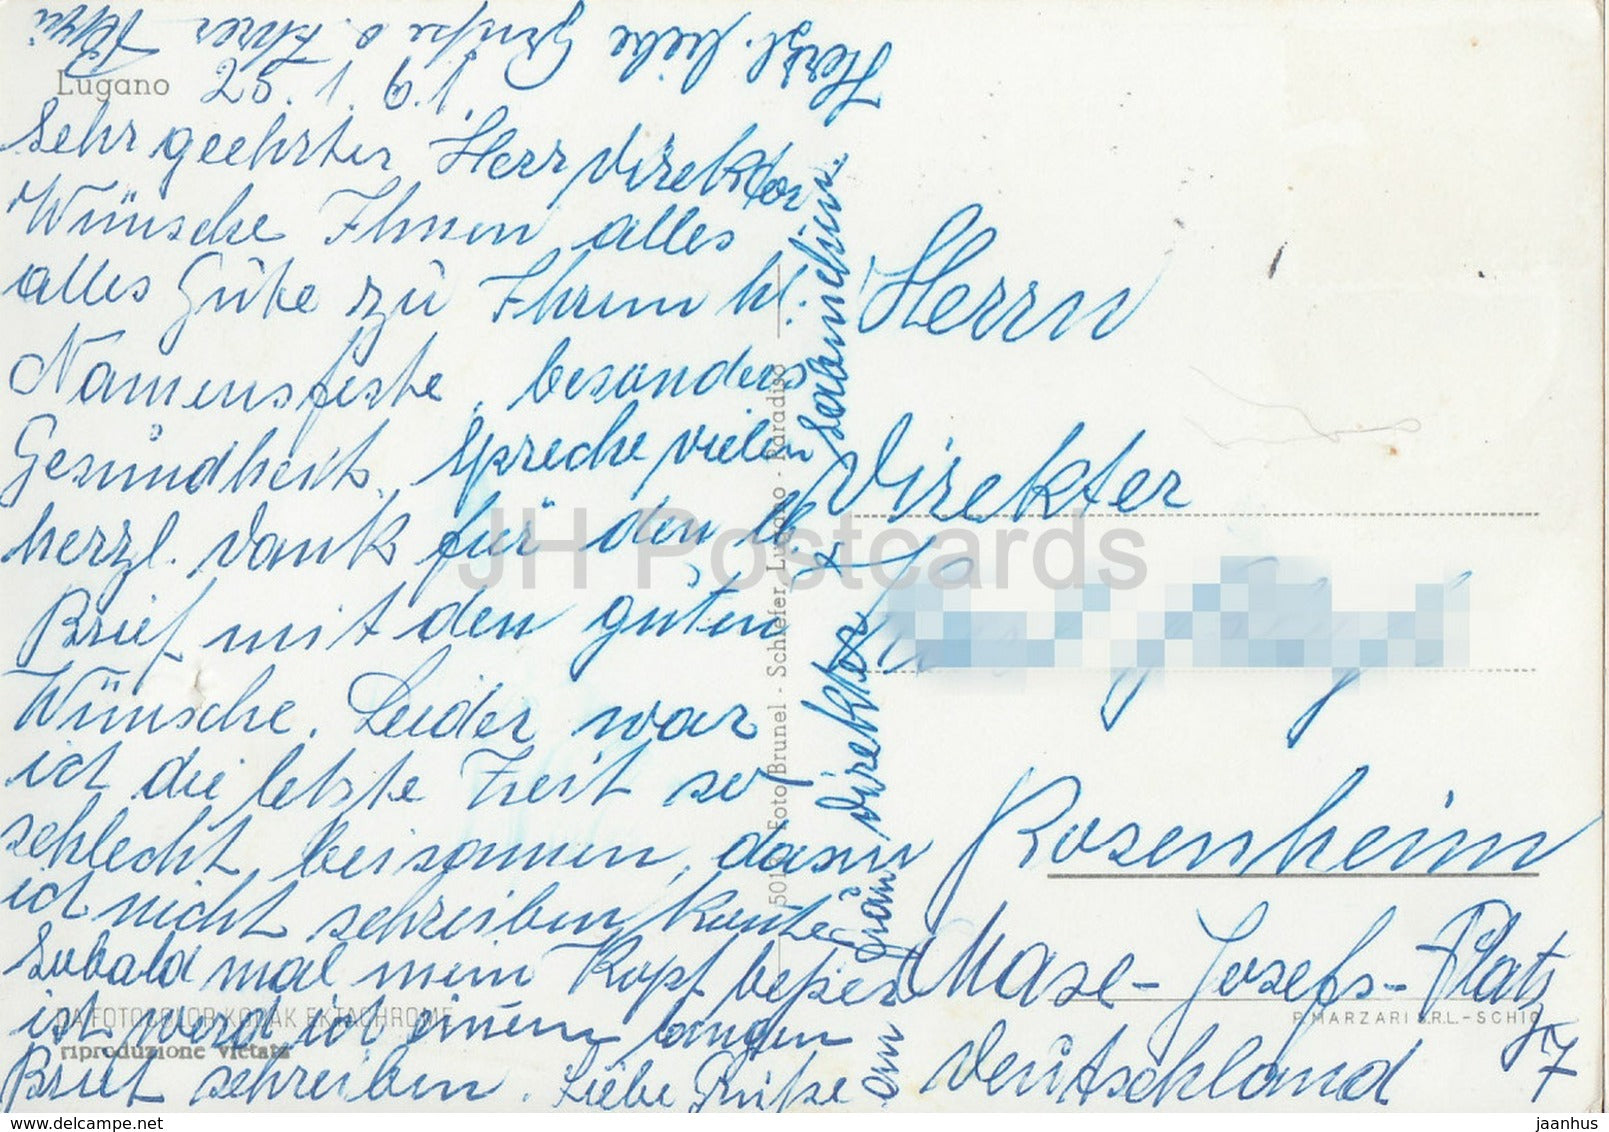 Lugano 25.1.61.
Sehr geehrter Herr Direktor
Wünsche Ihnen alles
alles Gute zu Ihrem hl.
Namensfeste, besonders
Gesundheit. Spreche vielen
herzl. Dank für den lb.
Brief mit den guten
Wünsche. Leider war
ich die letzte Zeit so
schlecht beisamen, dass
ich nicht schreiben konnte.
Sobald mal mein Kopf besser
ist, werd ich einen langen
Brief schreiben. Liebe Grüße
an Frau Direkter + Söhnchen
Herzl. liebe Grüße v. Ihrer
Herrn
Direkter
Rosenheim
Max-Josefs-Platz
7
Deutschland
5018 Foto Brunel - Schiefer, Lugano - Paradiso
DA FOTOCOLOR KODAK EKTACHROME
riproduzione vietata
P. MARZARI S.R.L. - SCHIO
JH Postcards
delcampe.net
jaanhus